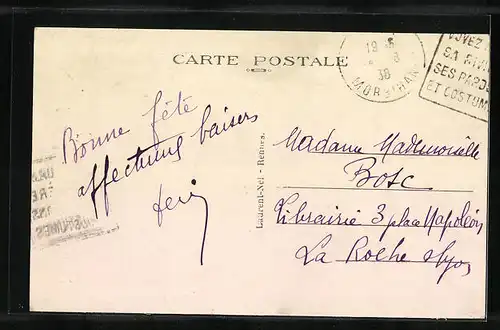 CARTE POSTALE
19 35
8
38
MORBIHAN
SA RIVI
SES PARDO
ET COSTUM
Bonne fête
affectueux baisers
Laurent-Nel - Rennes.
Madame Mademoiselle
Bosc
Librairie 3 place Napoléon
La Roche s/yon